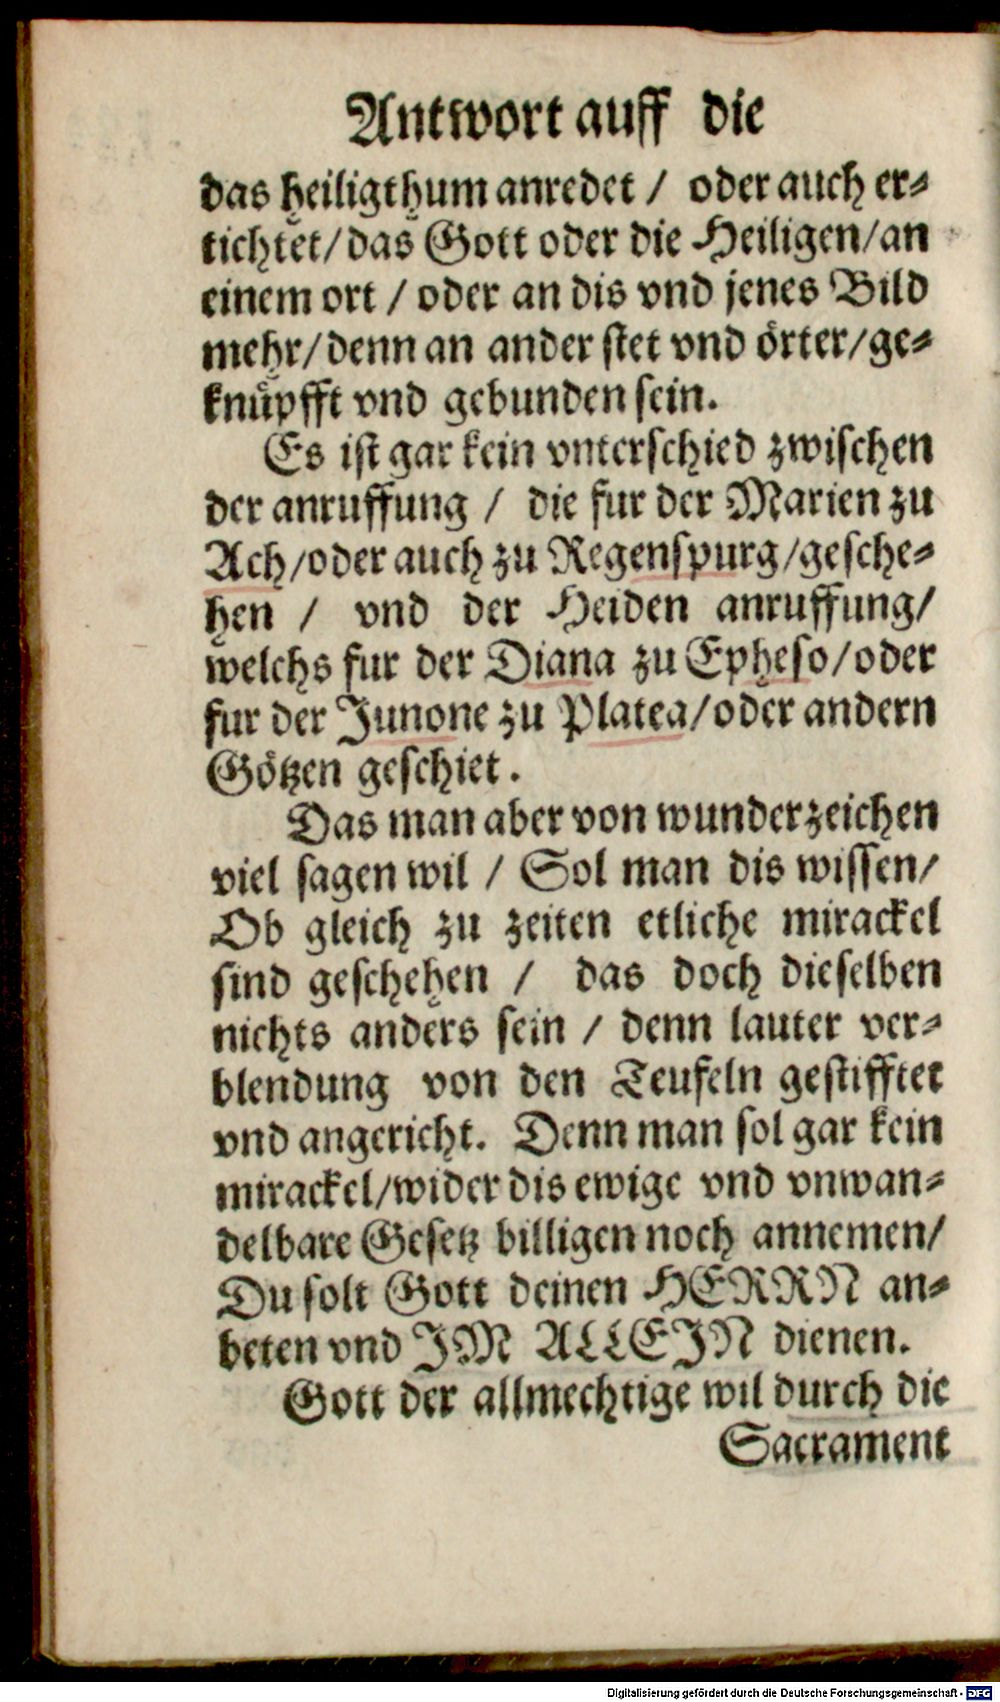 Antwort auff die
das heiligthum anredet / oder auch er⸗
tichtet/das Gott oder die Heiligen/an
einem ort / oder an dis vnd jenes Bild
mehr/denn an ander stet vnd örter/ge⸗
knüpfft vnd gebunden sein.
Es ist gar kein vnterschied zwischen
der anruffung / die fur der Marien zu
Ach/oder auch zu Regenspurg/gesche⸗
hen / vnd der Heiden anruffung/
welchs fur der Diana zu Epheso/oder
fur der Junone zu Platea/oder andern
Götzen geschiet.
Das man aber von wunderzeichen
viel sagen wil / Sol man dis wissen/
Ob gleich zu zeiten etliche mirackel
sind geschehen / das doch dieselben
nichts anders sein / denn lauter ver⸗
blendung von den Teufeln gestifftet
vnd angericht. Denn man sol gar kein
mirackel/wider dis ewige vnd vnwan⸗
delbare Gesetz billigen noch annemen/
Du solt Gott deinen HERRN an⸗
beten vnd JM ALLEJN dienen.
Gott der allmechtige wil durch die
Sacrament
Digitalisierung gefördert durch die Deutsche Forschungsgemeinschaft - DFG